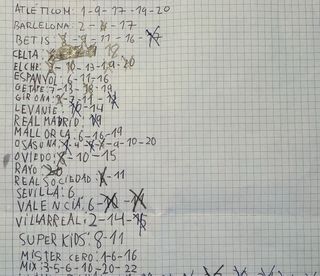 ATLÉTICO M: 1-9-17-19-20
BARCELONA: 2-X-17
BETIS: -11-16-
CELTA: 18
ELCHE: -10-13-19-20
ESPANYOL: 6-11-16
GETAFE: 7-13-18-19
GIRONA: -7-11-
LEVANTE: 10-14
REAL MADRID: 19
MALLORCA: 6-16-19
OSASUNA: -4-X-X-9-10-20
OVIEDO: X-10-15
RAYO:
REAL SOCIEDAD: X-11
SEVILLA: 6
VALENCIA: 6-
VILLARREAL: 2-14-
SUPER KIDS: 8-11
MÍSTER CERO: 1-6-16
MIX: 3-5-6-10-20-22